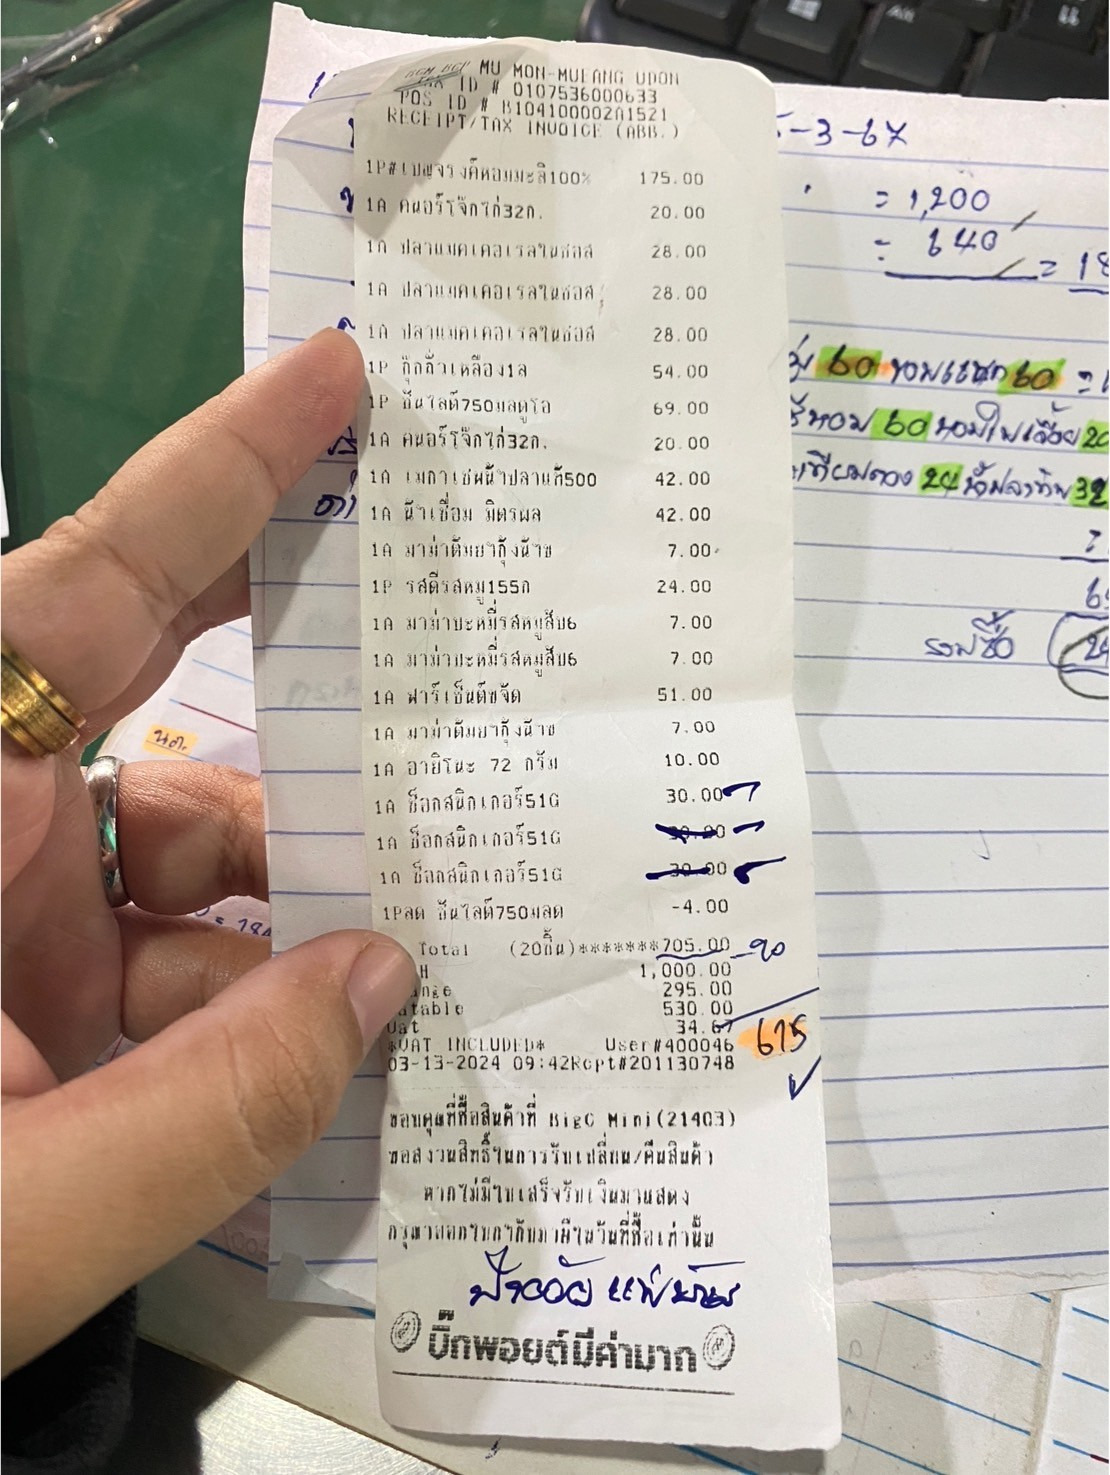 MU MON-MUEANG UDON
TAX ID # 0107536000633
POS ID # B104100002A1521
RECEIPT/TAX INVOICE (ABB.)
1P#เบญจรงค์หอมมะลิ100% 175.00
1A คนอร์โจ๊กไก่32ก. 20.00
1A ปลาแมคเคอเรลในซอส 28.00
1A ปลาแมคเคอเรลในซอส 28.00
1A ปลาแมคเคอเรลในซอส 28.00
1P กุ๊กถั่วเหลือง1ล 54.00
1P ซันไลต์750มลดูโอ 69.00
1A คนอร์โจ๊กไก่32ก. 20.00
1A เมกาเชฟน้ำปลาแท้500 42.00
1A น้ำเชื่อม มิตรผล 42.00
1A มาม่าต้มยำกุ้งน้ำข 7.00
1P รสดีรสหมู155ก 24.00
1A มาม่าบะหมี่รสหมูสับ6 7.00
1A มาม่าบะหมี่รสหมูสับ6 7.00
1A ฟาร์เซ็นต์ขจัด 51.00
1A มาม่าต้มยำกุ้งน้ำข 7.00
1A อายิโนะ 72 กรัม 10.00
1A ช็อกสนิกเกอร์51G 30.00
1A ช็อกสนิกเกอร์51G 30.00
1A ช็อกสนิกเกอร์51G 30.00
1Pลด ซันไลต์750มลด -4.00
Total (20ชิ้น)*******705.00 -90
H 1,000.00
ange 295.00
atable 530.00
Vat 34.67
*VAT INCLUDED* User#400046 615
03-13-2024 09:42Rcpt#201130748
ขอบคุณที่ซื้อสินค้าที่ BigC Mini(21403)
ขอสงวนสิทธิ์ในการรับเปลี่ยน/คืนสินค้า
หากไม่มีใบเสร็จรับเงินมาแสดง
กรุณาออกใบกำกับภาษีในวันที่ซื้อเท่านั้น
บิ๊กพอยต์มีค่ามาก
-3-67
= 1,200
= 640
= 18
60 หอมแขก 60 =
หอม 60 หอมใบเลื้อย 20
เทียมดอง 24 น้ำปลาทิพ 32
รวมซื้อ
นต.